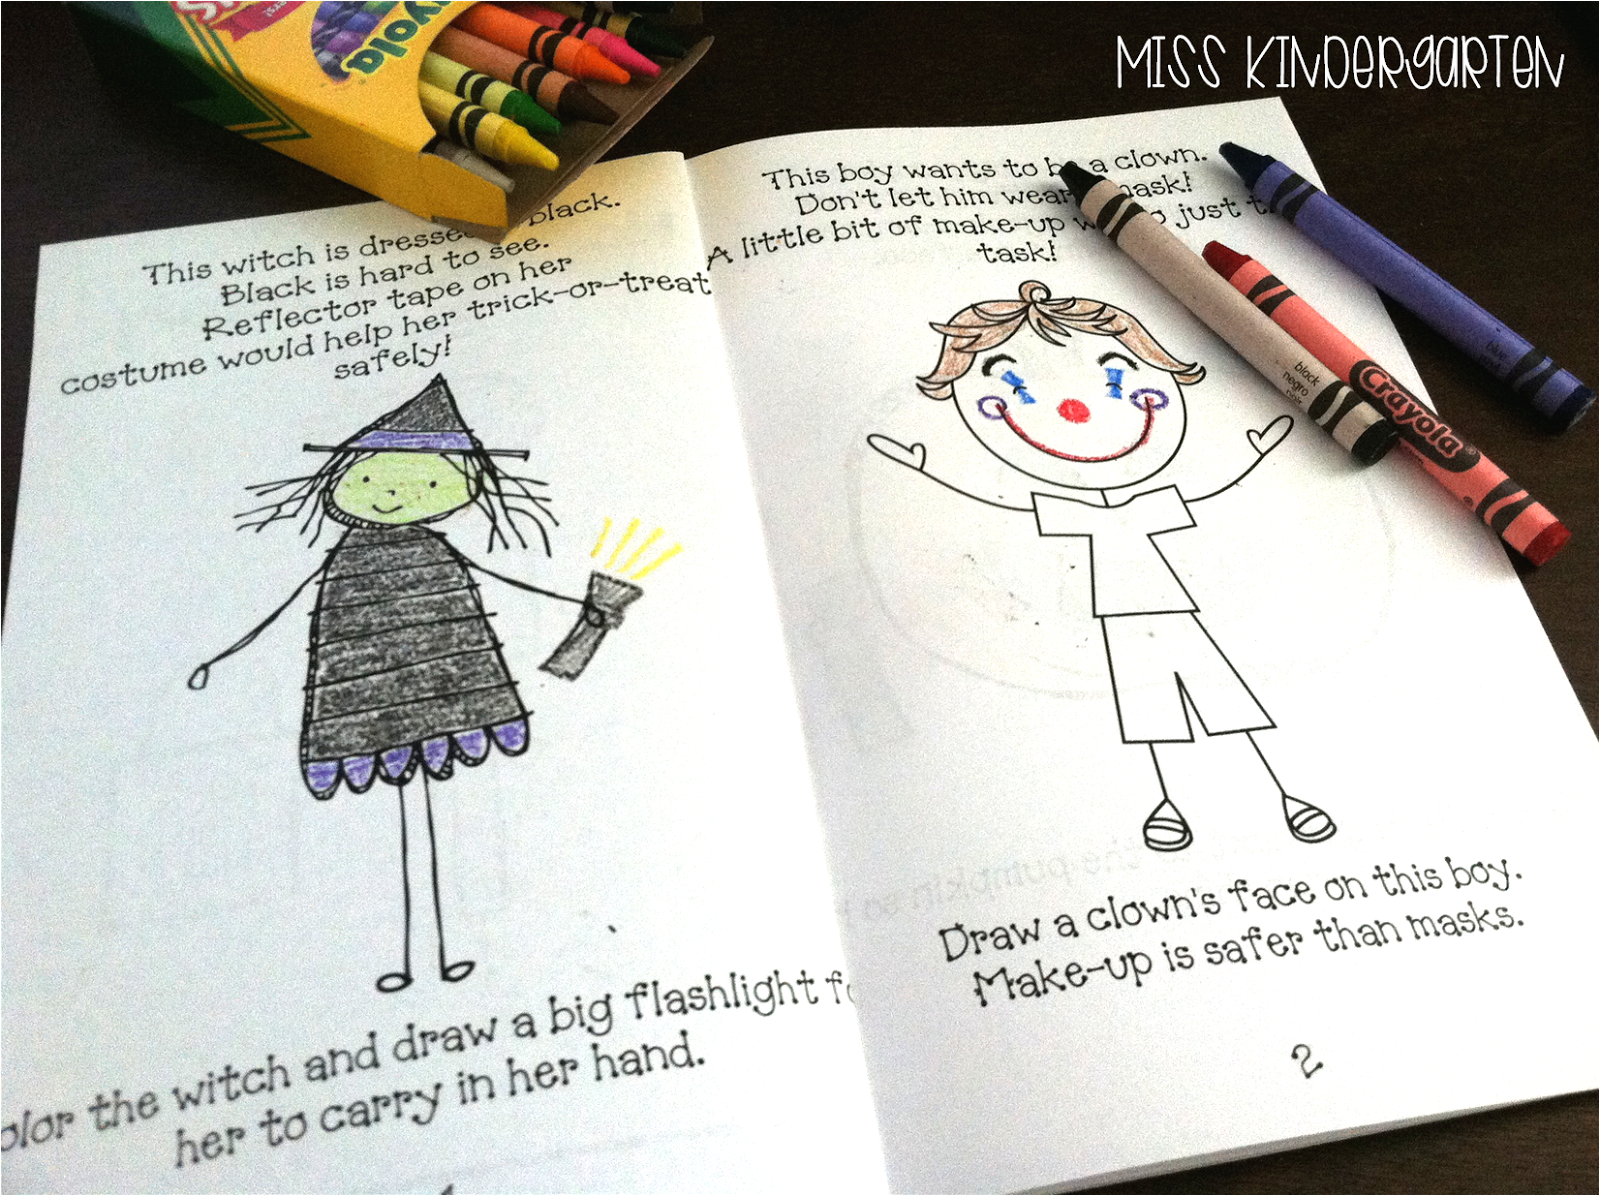 MISS KINDERGARTEN
Crayola
This witch is dressed black.
Black is hard to see.
Reflector tape on her
costume would help her trick-or-treat
safely!
olor the witch and draw a big flashlight fo
her to carry in her hand.
This boy wants to be a clown.
Don't let him wear mask!
A little bit of make-up just
task!
Draw a clown's face on this boy.
Make-up is safer than masks.
2
black
negro
noir
Crayola
blue